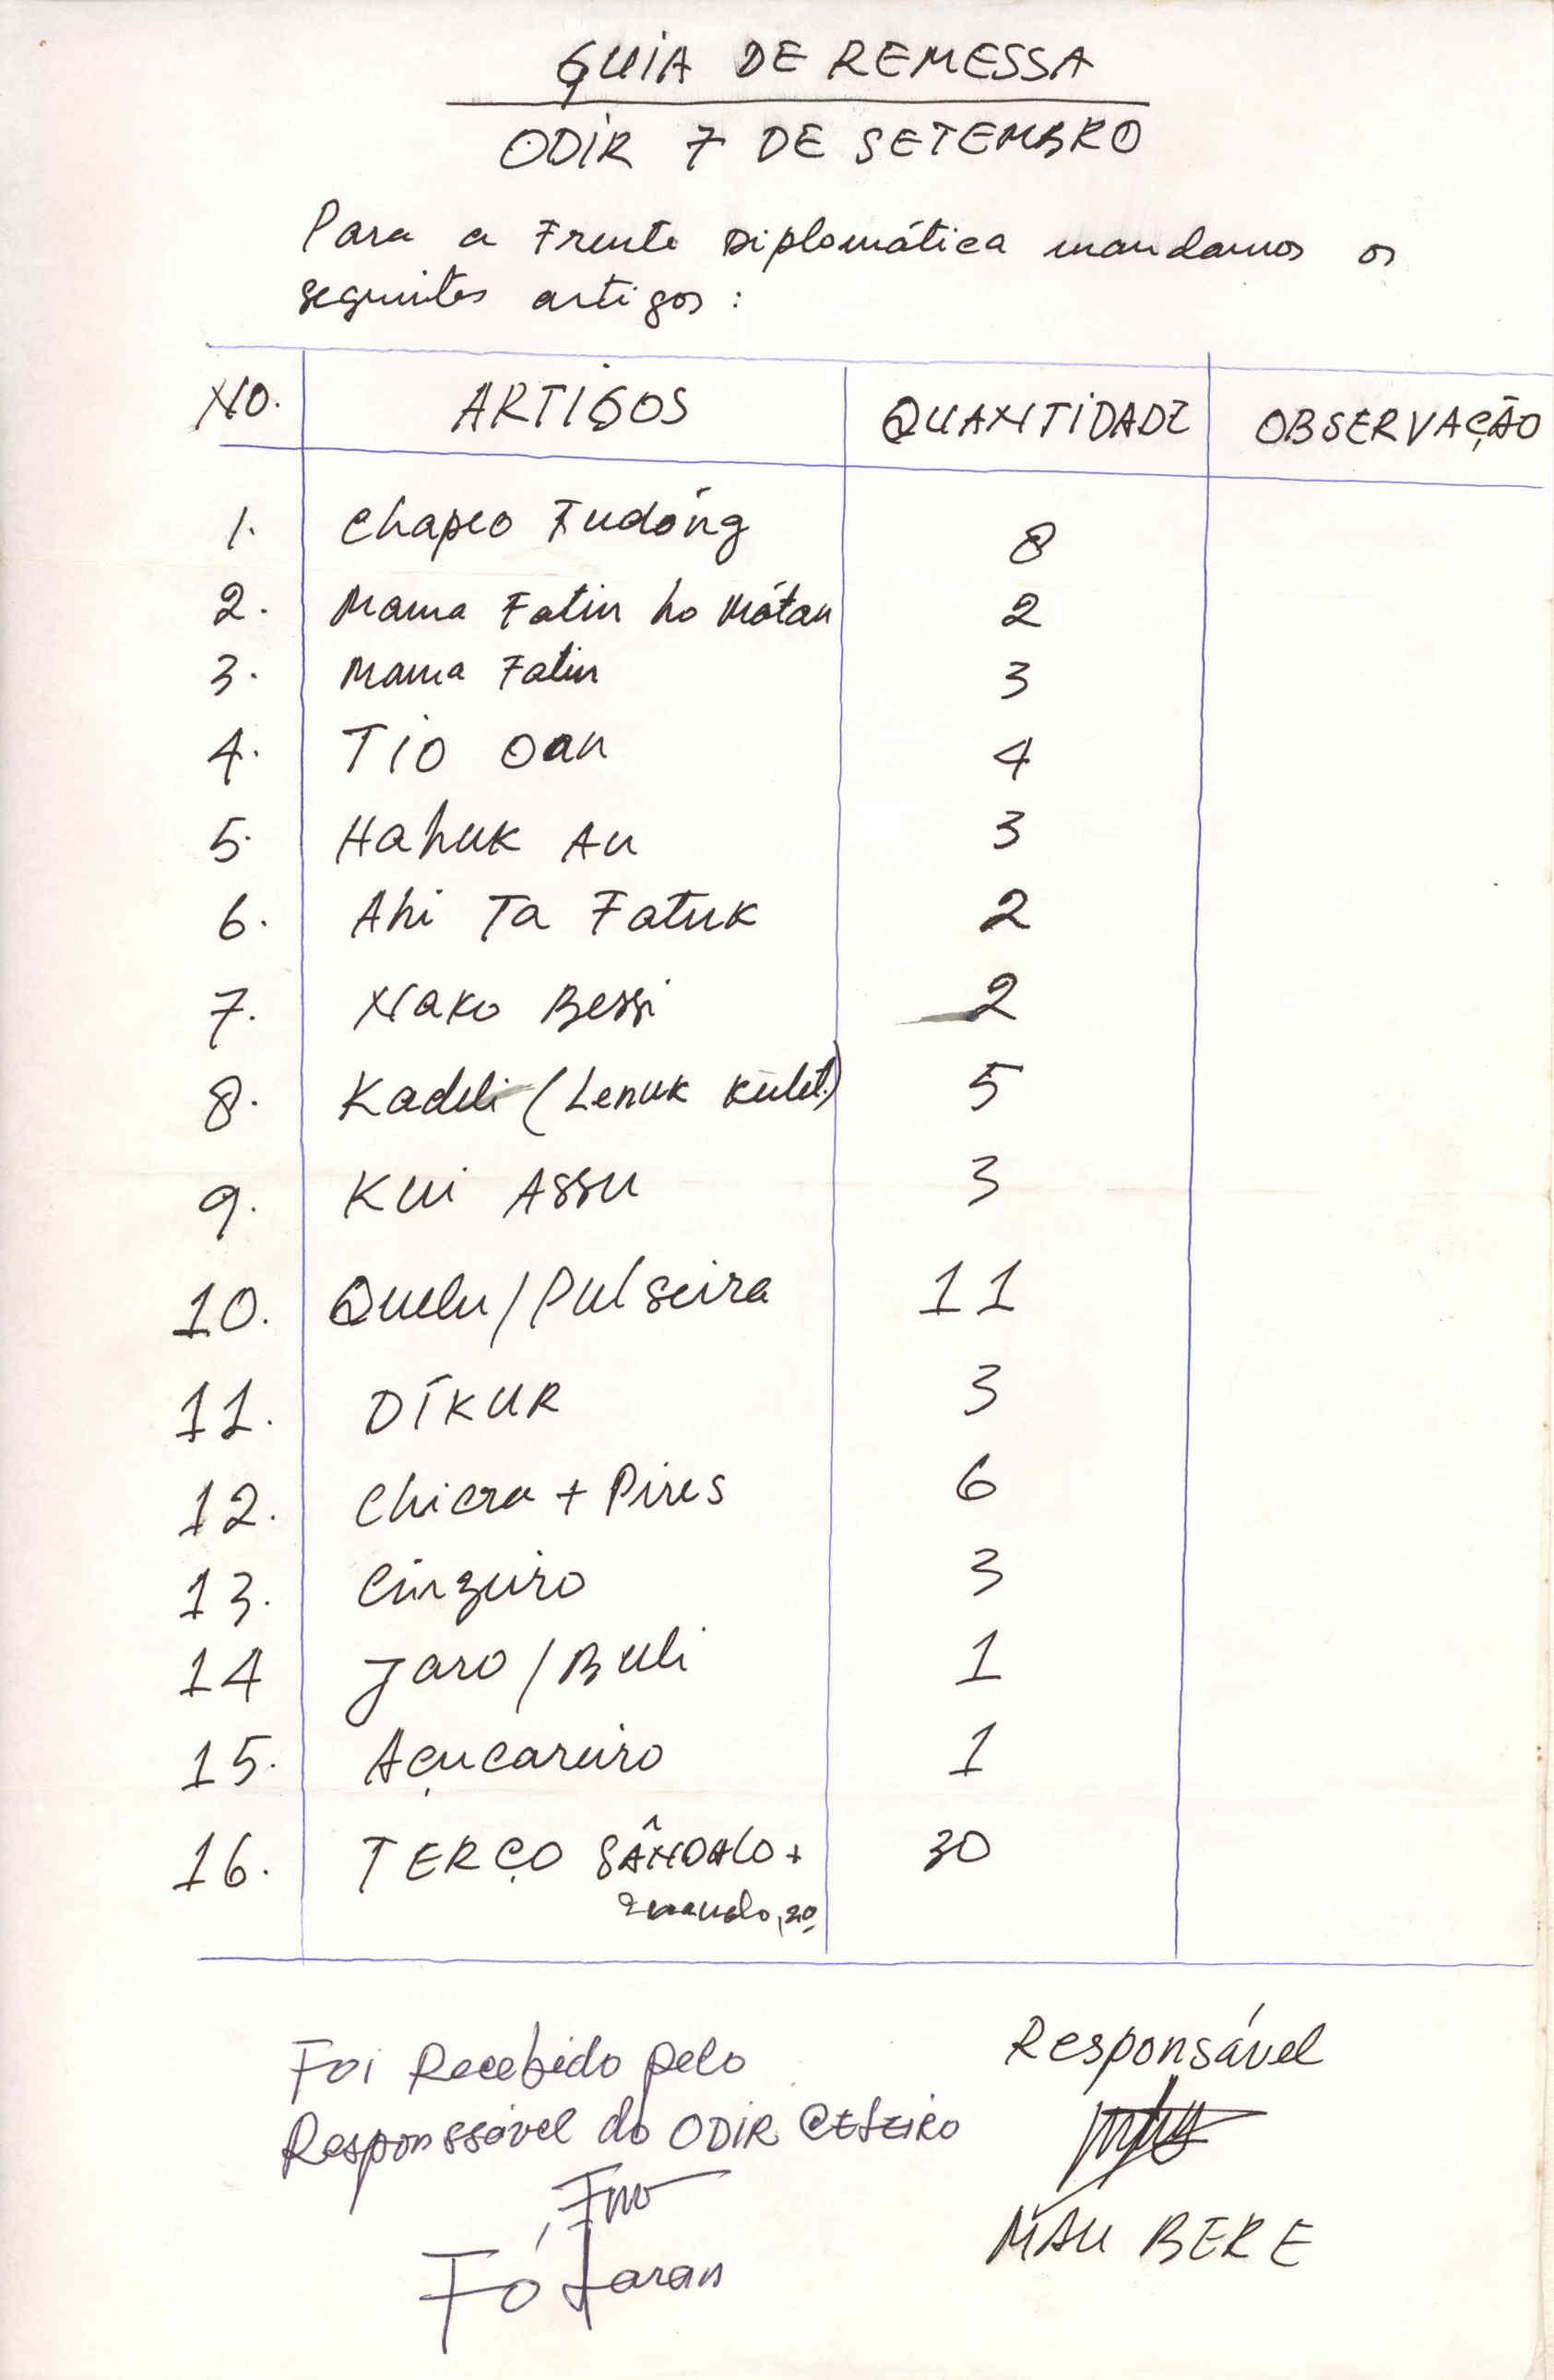 GUIA DE REMESSA
ODIR 7 DE SETEMBRO
Para a Frente Diplomática mandamos os
seguintes artigos :
NO. ARTIGOS QUANTIDADE OBSERVAÇÃO
1. Chapeo Fudóng 8
2. Mama Fatin ho Mótan 2
3. Mama Fatin 3
4. Tio oan 4
5. Hahuk Au 3
6. Ahi Ta Fatuk 2
7. Nako Bessi 2
8. Kadeli (Lenuk Kulit) 5
9. Kui Assu 3
10. Quelu/Pulseira 11
11. DÍKUR 3
12. Chicra + Pires 6
13. Cinzeiro 3
14 Jaro / Buli 1
15. Açucareiro 1
16. TERÇO SÂNDALO + 30
Foi Recebido pelo
Responssável do ODIR
Responsável
MAU BERE
Fó Laran